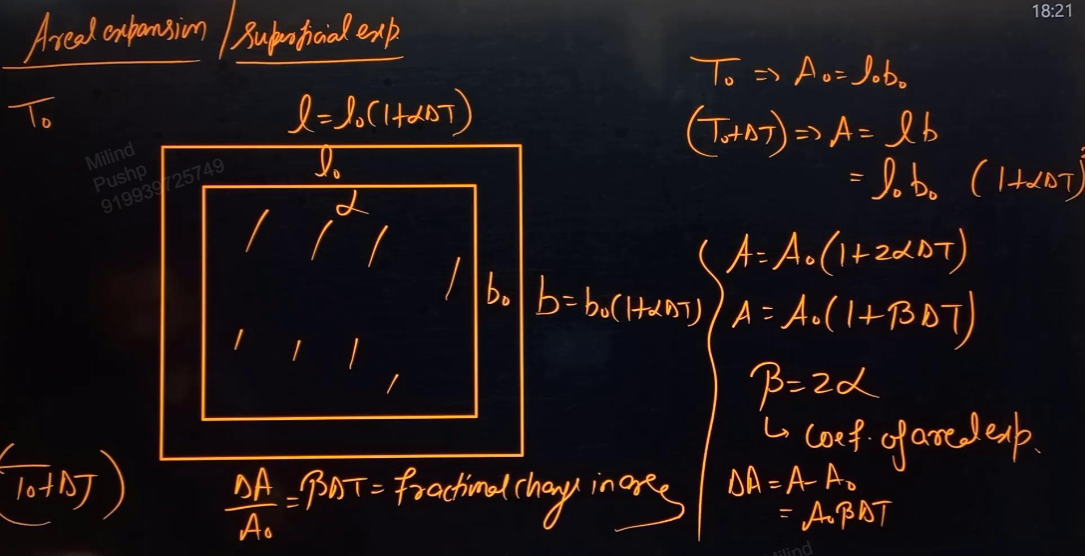 18:21
Areal expansion / Superficial exp.
T₀
l = l₀(1+αΔT)
l₀
α
b₀
b = b₀(1+αΔT)
Milind
Pushp
919939725749
(T₀+ΔT)
ΔA/A₀ = βΔT = fractional change in area
T₀ => A₀ = l₀b₀
(T₀+ΔT) => A = lb
= l₀b₀ (1+αΔT)²
A = A₀(1+2αΔT)
A = A₀(1+βΔT)
β = 2α
↳ coef. of areal exp.
ΔA = A - A₀
= A₀βΔT
Milind